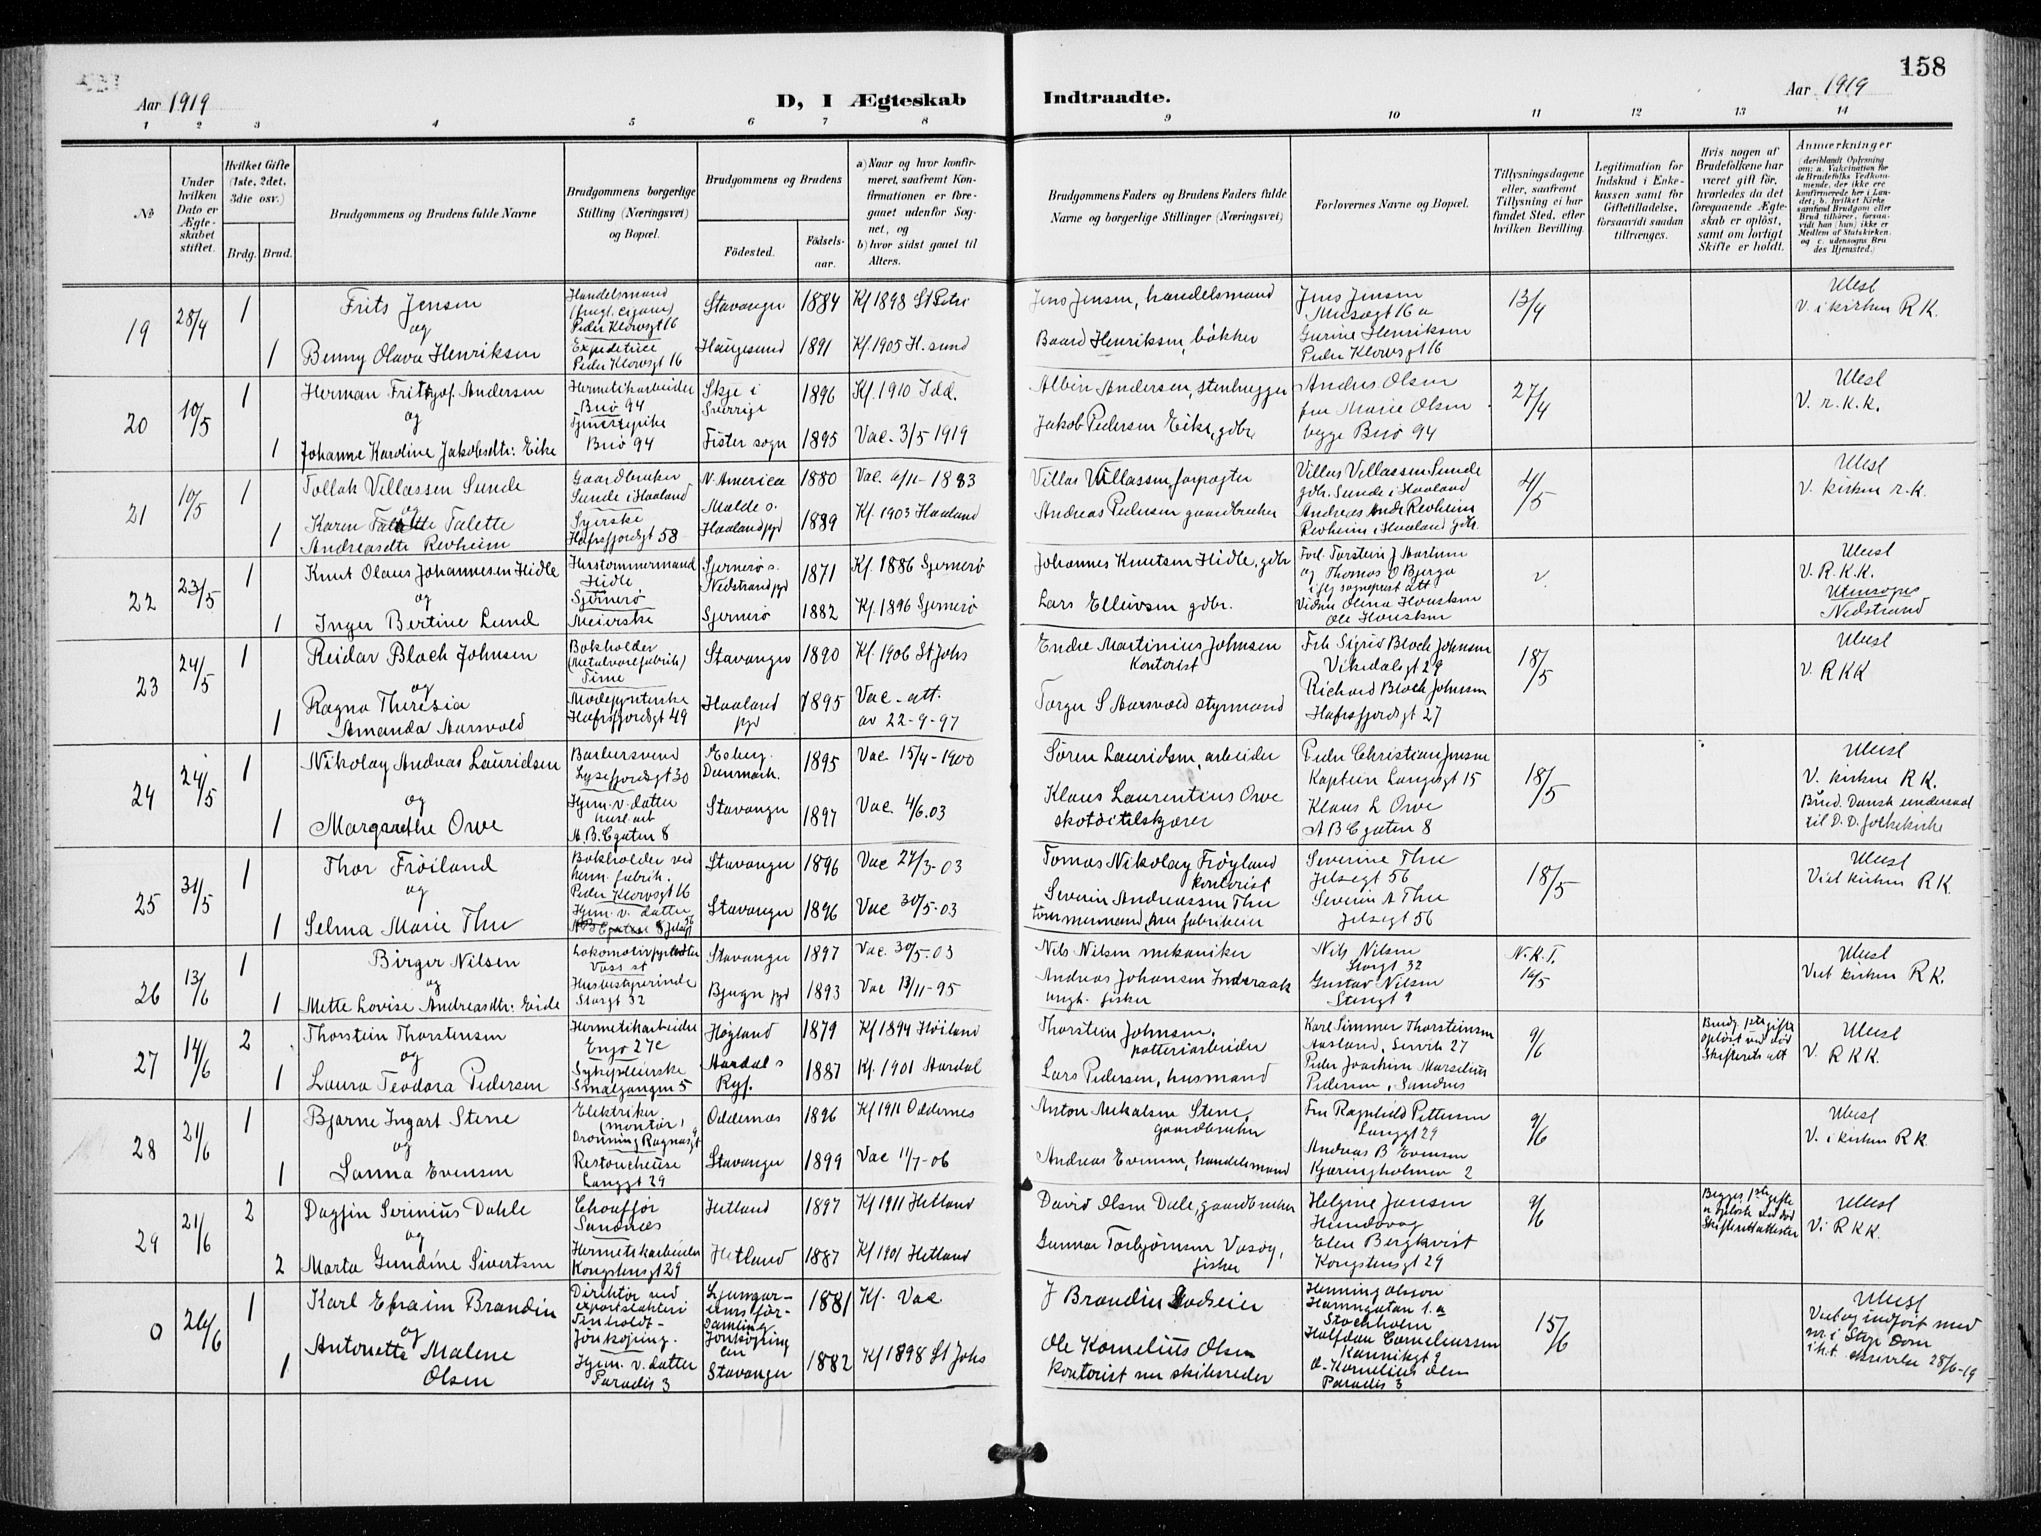 158
Aar 1919
D, I Ægteskab
Indtraadte.
Aar 1919
1 2 3 4 5 6 7 8 9 10 11 12 13 14
No
Under hvilken Dato er Ægteskabet stiftet.
Hvilket Gifte (1ste, 2det, 3die osv.)
Brdg. Brud.
Brudgommens og Brudens fulde Navne
Brudgommens borgerlige Stilling (Næringsvei) og Bopæl.
Brudgommens og Brudens
Födested.
Födselsaar.
a) Naar og hvor konfirmeret, saafremt Konfirmationen er foregaaet udenfor Sognet, og
b) hvor sidst gaaet til Alters.
Brudgommens Faders og Brudens Faders fulde Navne og borgerlige Stillinger (Næringsvei)
Forlovernes Navne og Bopæl.
Tillysningsdagene eller, saafremt Tillysning ei har fundet Sted, efter hvilken Bevilling.
Legitimation for Indskud i Enkekassen samt for Giftetilladelse, forsaavidt saadan tiltrænges.
Hvis nogen af Brudefolkene har været gift för, hvorledes da det foregaaende Ægteskab er oplöst, samt om lovligt Skifte er holdt.
Anmærkninger
19 28/4 1 Frits Jensen
og
1 Benny Olava Henriksen
Handelsmand
Peder Klowsgt 16
Expeditrice
Peder Klowsgt 16
Stavanger 1884 Kf 1898 St Petri
Haugesund 1891 Kf. 1905 H.sund
Jens Jensen, handelsmand
Baard Henriksen, bøkker
Jens Jensen
Musegt 16 a
Gurine Henriksen
Peder Klowsgt 16
13/4
Ulest
V. i kirken R K.
20 10/5 1 Herman Fritjof Andersen
og
1 Johanne Karoline Jakobsdtr: Eike
Hermetikarbeider
Buø 94
Buø 94
Skje i Sverrige 1896 Kf. 1910 Idd.
Fister sogn 1895 Vac. 3/5 1919
Albin Andersen, stenhugger
Jakob Pedersen Eike, gdbr.
Anders Olsen
fru Marie Olsen
begge Buø 94
27/4
Ulest
V. r.k.k.
21 10/5 1 Tollak Villassen Sunde
og
1 Karen Talette
Andreasdtr Revheim
Gaardbruker
Sunde i Haaland
Syerske
Hafrsfjordgt 58
N. America 1880 Vac. 6/11-1883
Malde s. Haaland pgd 1889 Kf. 1903 Haaland
Villas Villassen forpagter
Andreas Pedersen gaardbruker
Villas Villassen Sunde
gdbr. Sunde i Haaland
Andreas Andr Revheim
Revheim i Haaland gdbr.
4/5
Ulest
V. kirken r.k.
22 23/5 1 Knut Olaus Johannesen Hidle
og
1 Inger Bertine Lund
Hustømmermand
Hidle
Sjernerø
Meierske
Sjernerø s. Nedstrand pgd 1871 Kf. 1886 Sjernerø
Sjernerø 1882 Kf. 1896 Sjernerø
Johannes Knutsen Hidle, gdbr
Lars Ellivsen gdbr.
og Thomas O Bjerga
i flg sogneprest att
Ulest
V. R.K.K.
Utensogns
Nedstrand
23 24/5 1 Reidar Bloch Johnsen
og
1 Ragna Theresia
Amanda Aarsvold
Bokholder
(Metalvarefabrik)
Time
Modepynterske
Hafrsfjordgt 49
Stavanger 1890 Kf. 1906 St Johs
Haaland pgd 1895 Vac. att.
av 22-9-97
Endre Martinius Johnsen
Kontorist
Torger S Aarsvold styrmand
Frk Sigrid Bloch Johnsen
Vikedalsgt 29
Richard Bloch Johnsen
Hafrsfjordgt 27
18/5
Ulest
V. RKK
24 24/5 1 Nikolay Andreas Lauridsen
og
1 Margrethe Orve
Barbersvend
Lysefjordsgt 30
Hjem. v. datter
A.B.Cgaten 8
Esberg. Danmark. 1895 Vac. 15/4-1900
Stavanger 1897 Vac. 4/6.03
Søren Lauridsen, arbeider
Klaus Laurentius Orve
skotøitilskjærer
Peder Christian Jensen
Kaptein Langesgt 15
Klaus L Orve
A B Cgaten 8
18/5
Ulest
V. kirken R K.
Brud. Dansk undersaat
til D. D. folkekirke
25 31/5 1 Thor Frøiland
og
1 Selma Marie Thu
Bokholder ved
herm. fabrik.
Peder Klowsgt 16
Hjem. v. datter
Stavanger 1896 Vac 27/3-03
Stavanger 1896 Vac 30/5-03
Tomas Nikolay Frøyland
kontorist
Severin Andreassen Thu
tømmermand
Severine Thu
Jelsegt 56
Severin A Thu
Jelsegt 56
18/5
Ulest
Viet kirken R K.
26 13/6 1 Birger Nilsen
og
1 Mette Lovise Andreasdtr: Eide
Voss st
Husbestyrerinde
Storgt 32
Stavanger 1897 Vac. 30/5-03
Bjugn pgd 1893 Vac 13/11-95
Nils Nilsen mekaniker
Andreas Johansen Indsraak
ungk. fisker
Nils Nilsen
Storgt 32
Gustav Nilsen
Stengt 9
N.K.T.
16/5
Ulest
Viet kirken R K.
27 14/6 2 Thorstein Thorstensen
og
1 Laura Teodora Pedersen
Hermetikarbeider
Engø 27c
Sykepleierske
Smalgangen 5
Høgland 1879 Kf 1894 Høiland
Aardal s Ryf. 1887 Kf. 1901 Aardal
Thorstein Johnsen,
potteriarbeider
Lars Pedersen, husmand
Karl Simmer Thorsteinsen
Aasland, Servik 27
Peder Joachim Marselius
Pedersen, Sandnes
9/6
Brudg. 1ste gifte
opløst ved død
Skifterets att
Ulest
V. R KK.
28 21/6 1 Bjarne Ingart Stene
og
1 Sanna Evensen
Elektriker
(montør)
Dronning Ragnasgt 9
Retoucheuse
Langgt 29
Oddernes 1896 Kf 1911 Oddernes
Stavanger 1899 Vac 11/7-06
Anton Mikalsen Stene,
gaardbruker
Andreas Evensen, handelsmand
Fru Ragnhild Pettersen
Langgt 29
Andreas B Evensen
Kjæringholmen 2
9/6
Ulest
V. i kirken R K.
29 21/6 2 Dagfin Serinius Dahle
og
2 Marta Gundine Sivertsen
Chauffør
Sandnes
Hermetikarbeider
Kongstensgt 29
Hetland 1897 Kf 1911 Hetland
Hetland 1887 Kf 1901 Hetland
David Olsen Dale, gaardbruker
Gunnar Torbjørnsen Vasøy,
fisker
Helgine Jansen
Hundvaag
Elen Bergkvist
Kongstensgt 29
9/6
Begges 1ste gifte
er opløst ved død
Skifterettattester
Ulest
Vi R KK.
0 26/6 1 Karl Efraim Brandin
og
1 Antonette Malene
Olsen
Direktør ved
exportslakteri
Jönköping.
Hjem. v. datter
Paradis 3
1881 Kf. Vac
Stavanger 1882 Kf 1898 St Johs
J Brandin Godseier
Ole Kornelius Olsen
kontorist
Henning Olsson
Hamngatan 1.a
Stockholm
Halfdan Corneliussen
Kannikgt 9
O. Kornelius Olsen
Paradis 3
15/6
Ulest
Viet og indført med
nr. i Stgr Dom
i.h.t. skrivelse 28/6-19